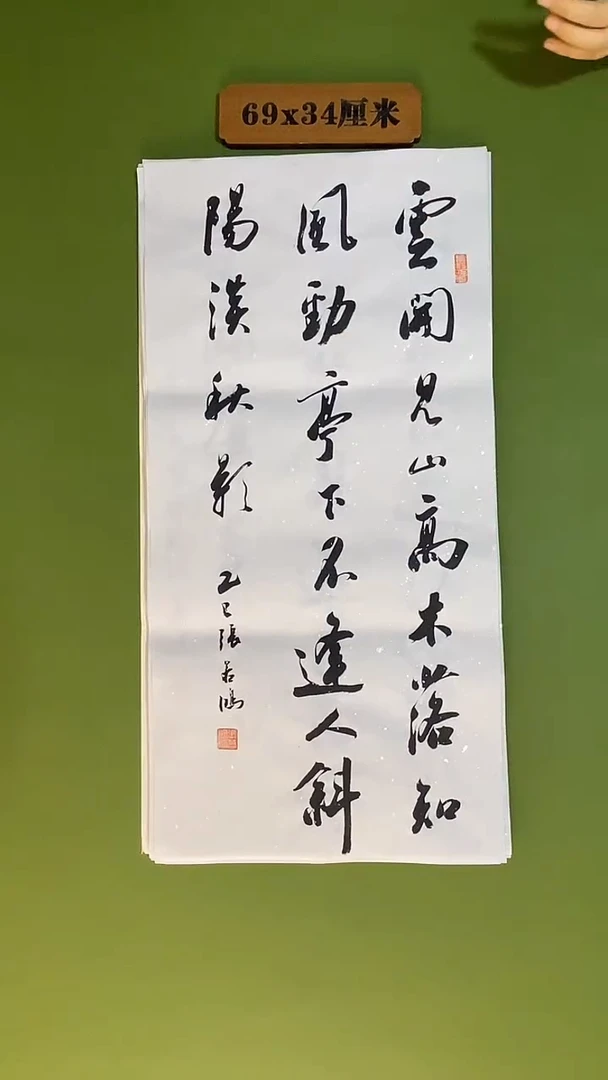 69x34厘米
雲開見山高木落知
風勁亭下不逢人斜
陽淡秋影
乙巳張